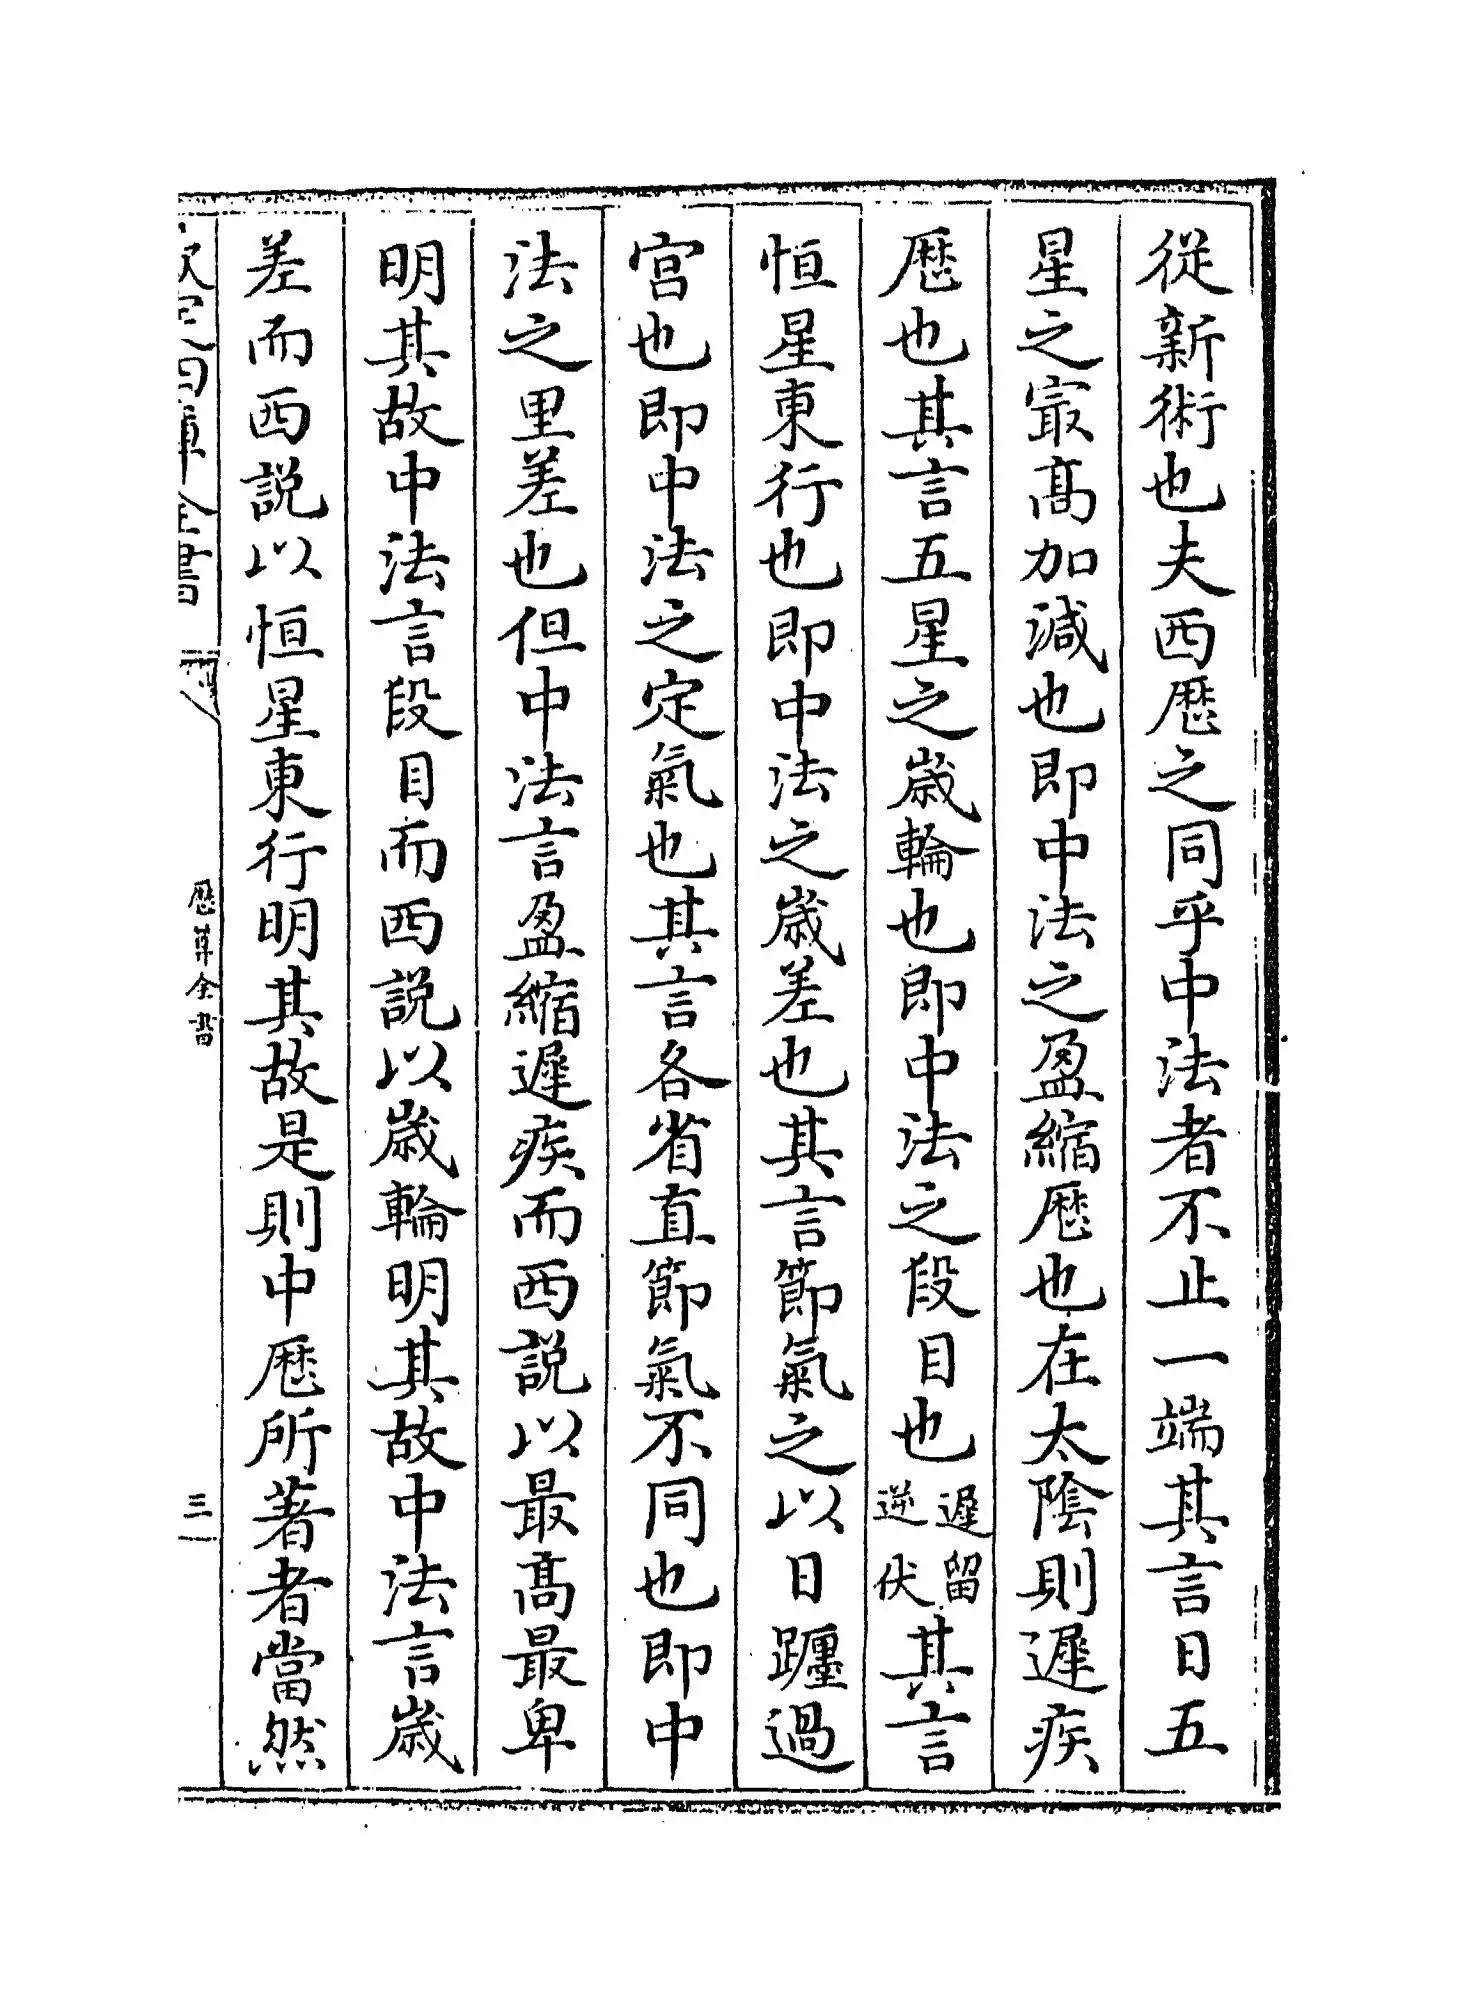 從新術也夫西厯之同乎中法者不止一端其言日五
星之㝡髙加減也即中法之盈縮厯也在太陰則遲疾
厯也其言五星之歳輪也即中法之段目也遲留逆伏其言
恒星東行也即中法之歳差也其言節氣之以日躔過
宫也即中法之定氣也其言各省直節氣不同也即中
法之里差也但中法言盈縮遲疾而西説以最髙最卑
明其故中法言段目而西説以歳輪明其故中法言歳
差而西説以恒星東行明其故是則中厯所著者當然
欽定四庫全書
厯算全書
三